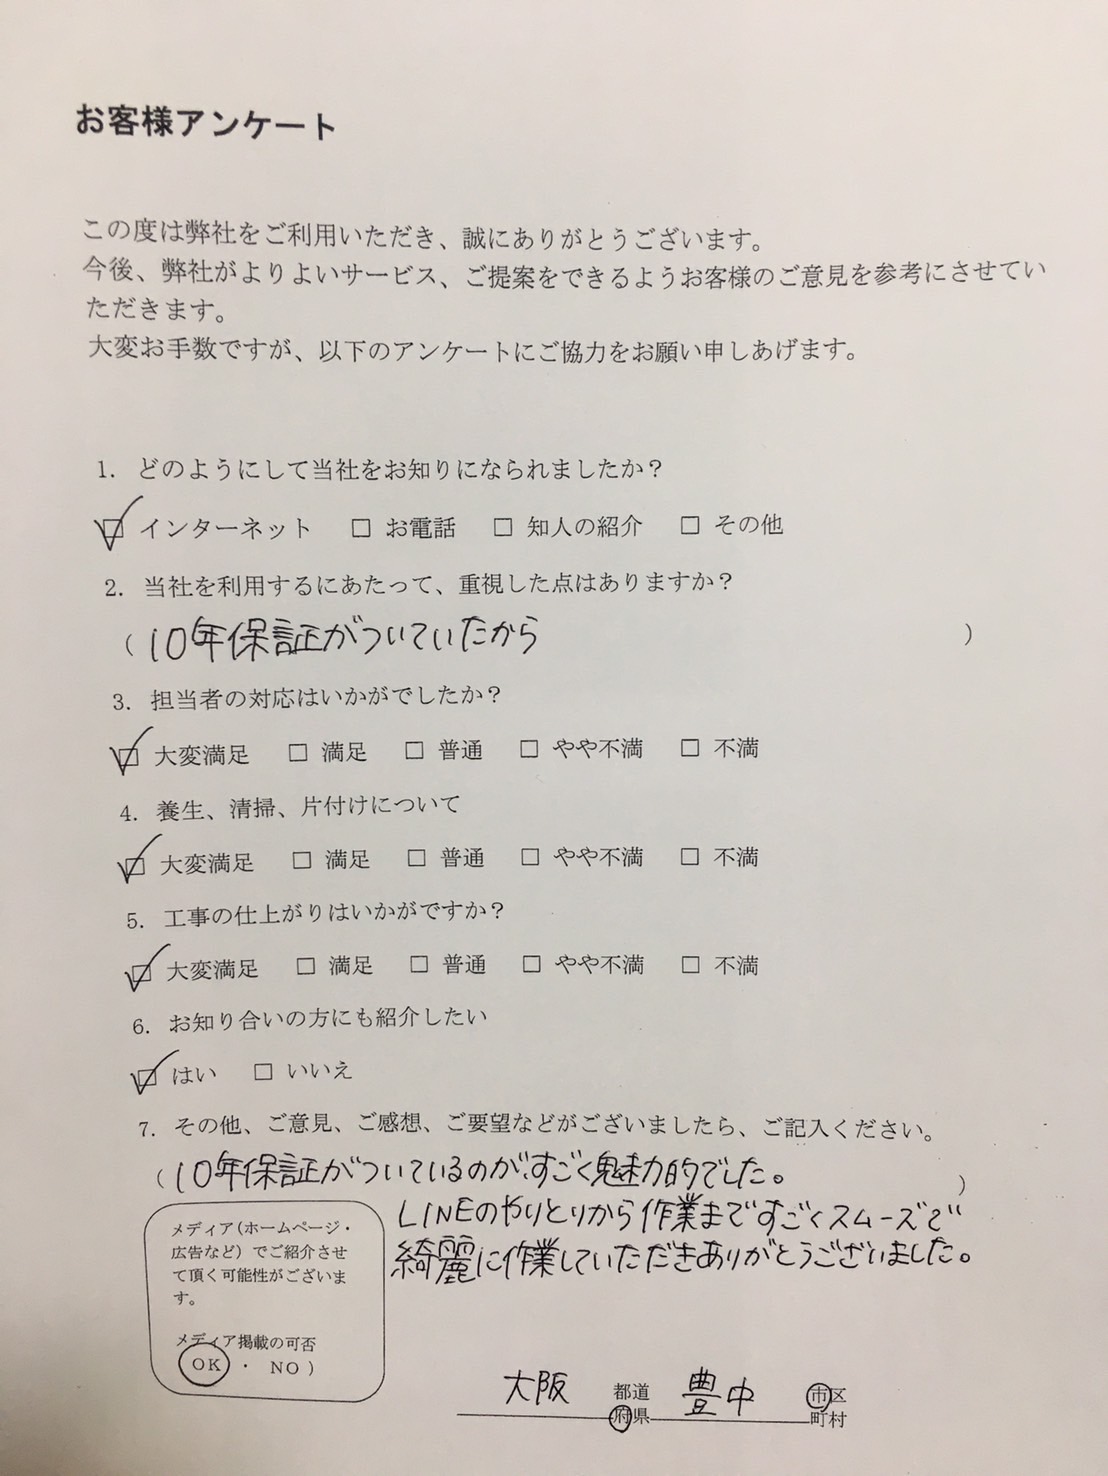 お客様アンケート
この度は弊社をご利用いただき、誠にありがとうございます。
今後、弊社がよりよいサービス、ご提案をできるようお客様のご意見を参考にさせてい
ただきます。
大変お手数ですが、以下のアンケートにご協力をお願い申しあげます。
1. どのようにして当社をお知りになられましたか？
☑ インターネット □ お電話 □ 知人の紹介 □ その他
2. 当社を利用するにあたって、重視した点はありますか？
（10年保証がついていたから ）
3. 担当者の対応はいかがでしたか？
☑ 大変満足 □ 満足 □ 普通 □ やや不満 □ 不満
4. 養生、清掃、片付けについて
☑ 大変満足 □ 満足 □ 普通 □ やや不満 □ 不満
5. 工事の仕上がりはいかがですか？
☑ 大変満足 □ 満足 □ 普通 □ やや不満 □ 不満
6. お知り合いの方にも紹介したい
☑ はい □ いいえ
7. その他、ご意見、ご感想、ご要望などがございましたら、ご記入ください。
（10年保証がついているのが、すごく魅力的でした。 ）
LINEのやりとりから作業まですごくスムーズで
綺麗に作業していただきありがとうございました。
メディア（ホームページ・
広告など）でご紹介させ
て頂く可能性がございま
す。
メディア掲載の可否
OK ・ NO）
大阪 都道 豊中 市区
府県 町村